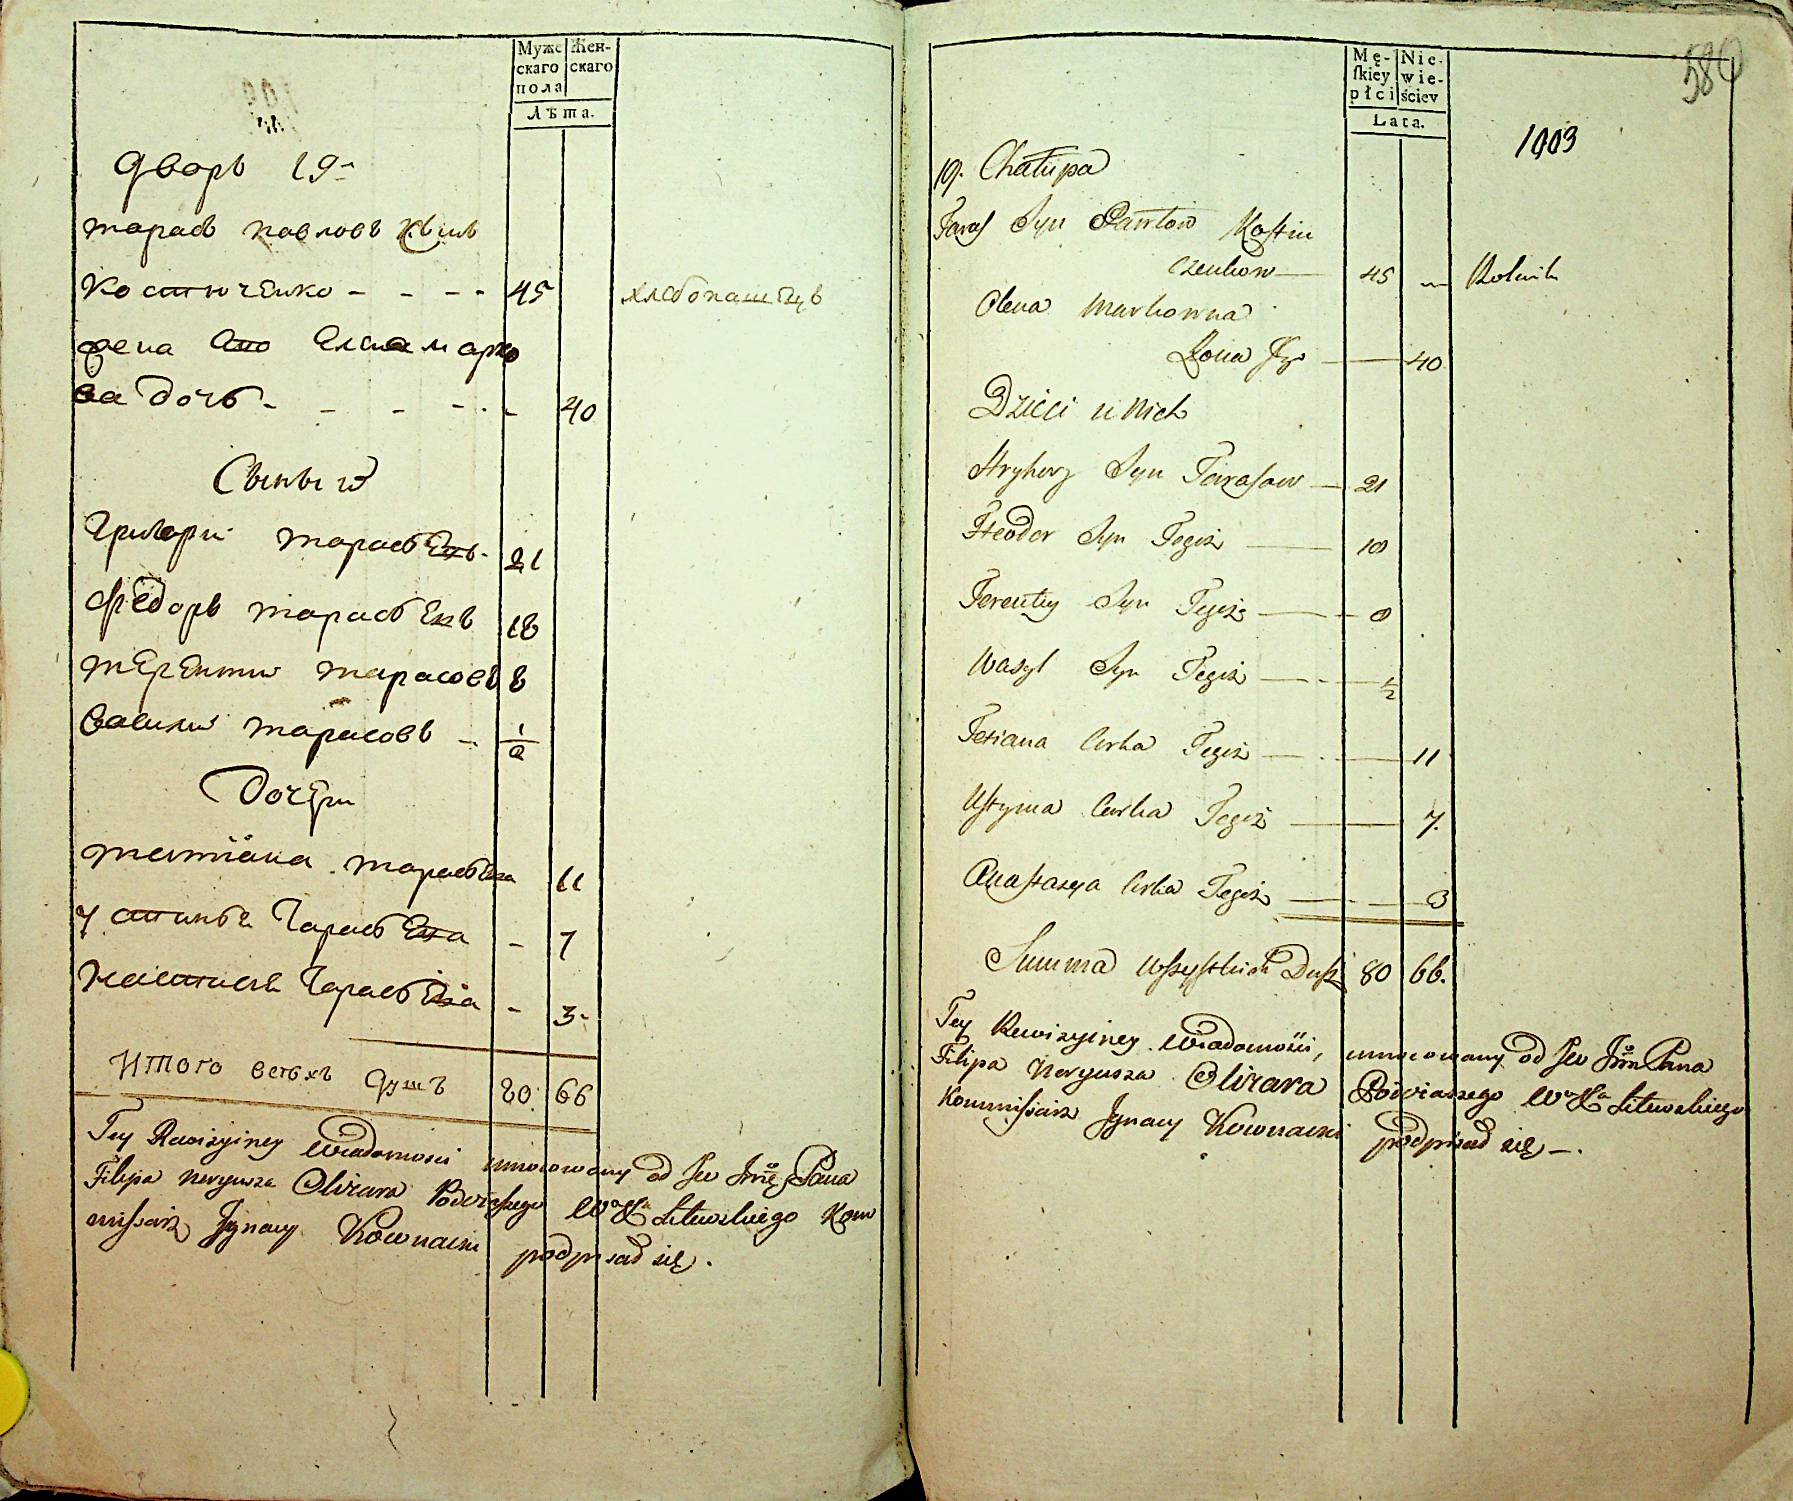 Муже
скаго
пола
Жен-
скаго
Лѣта.
Дворъ 19
тарасъ павловъ сынъ
костюченко - - - - 45 хлебопашецъ
жена его елена марко
ва дочь - - - - - 40
Сыны ихъ
Григорий тарасовъ 21
Фёдоръ тарасовъ 18
терентий тарасовъ 8
василий тарасовъ - 1/2
Дочери
татиана тарасова 11
устинья тарасова - 7
настасья тарасова - 3
Итого всѣхъ душъ 80 66
Tey Rewizyiney Wiadomości umocowany od JW Jmę Pana
Filipa Neryusza Olizara Podczaszego W° X° Litewskiego Kom
missarz Jgnacy Kownacki podpisał się.
586
Mę-
ſkiey
płci
Nie-
wie-
ściey
Lata.
1003
19. Chałupa
Taras Syn Pawłow Kostiu
czenkow 45 — Rolnik
Olena Markowna
Żona Jgo 40
Dzieci u Nich
Hryhory Syn Tarasow 21
Fteodor Syn Tegoż 18
Terenty Syn Tegoż 8
Wasyl Syn Tegoż 1/2
Tetiana Curka Tegoż 11
Ustyma Curka Tegoż 7.
Anastazya Curka Tegoż 3
Summa Wszystkich Dusz 80 66.
Tey Rewizyiney Wiadomości, umocowany od JW Jmę Pana
Filipa Neryusza Olizara Podczaszego W° X° Litewskiego
Kommissarz Jgnacy Kownacki podpisał się —.